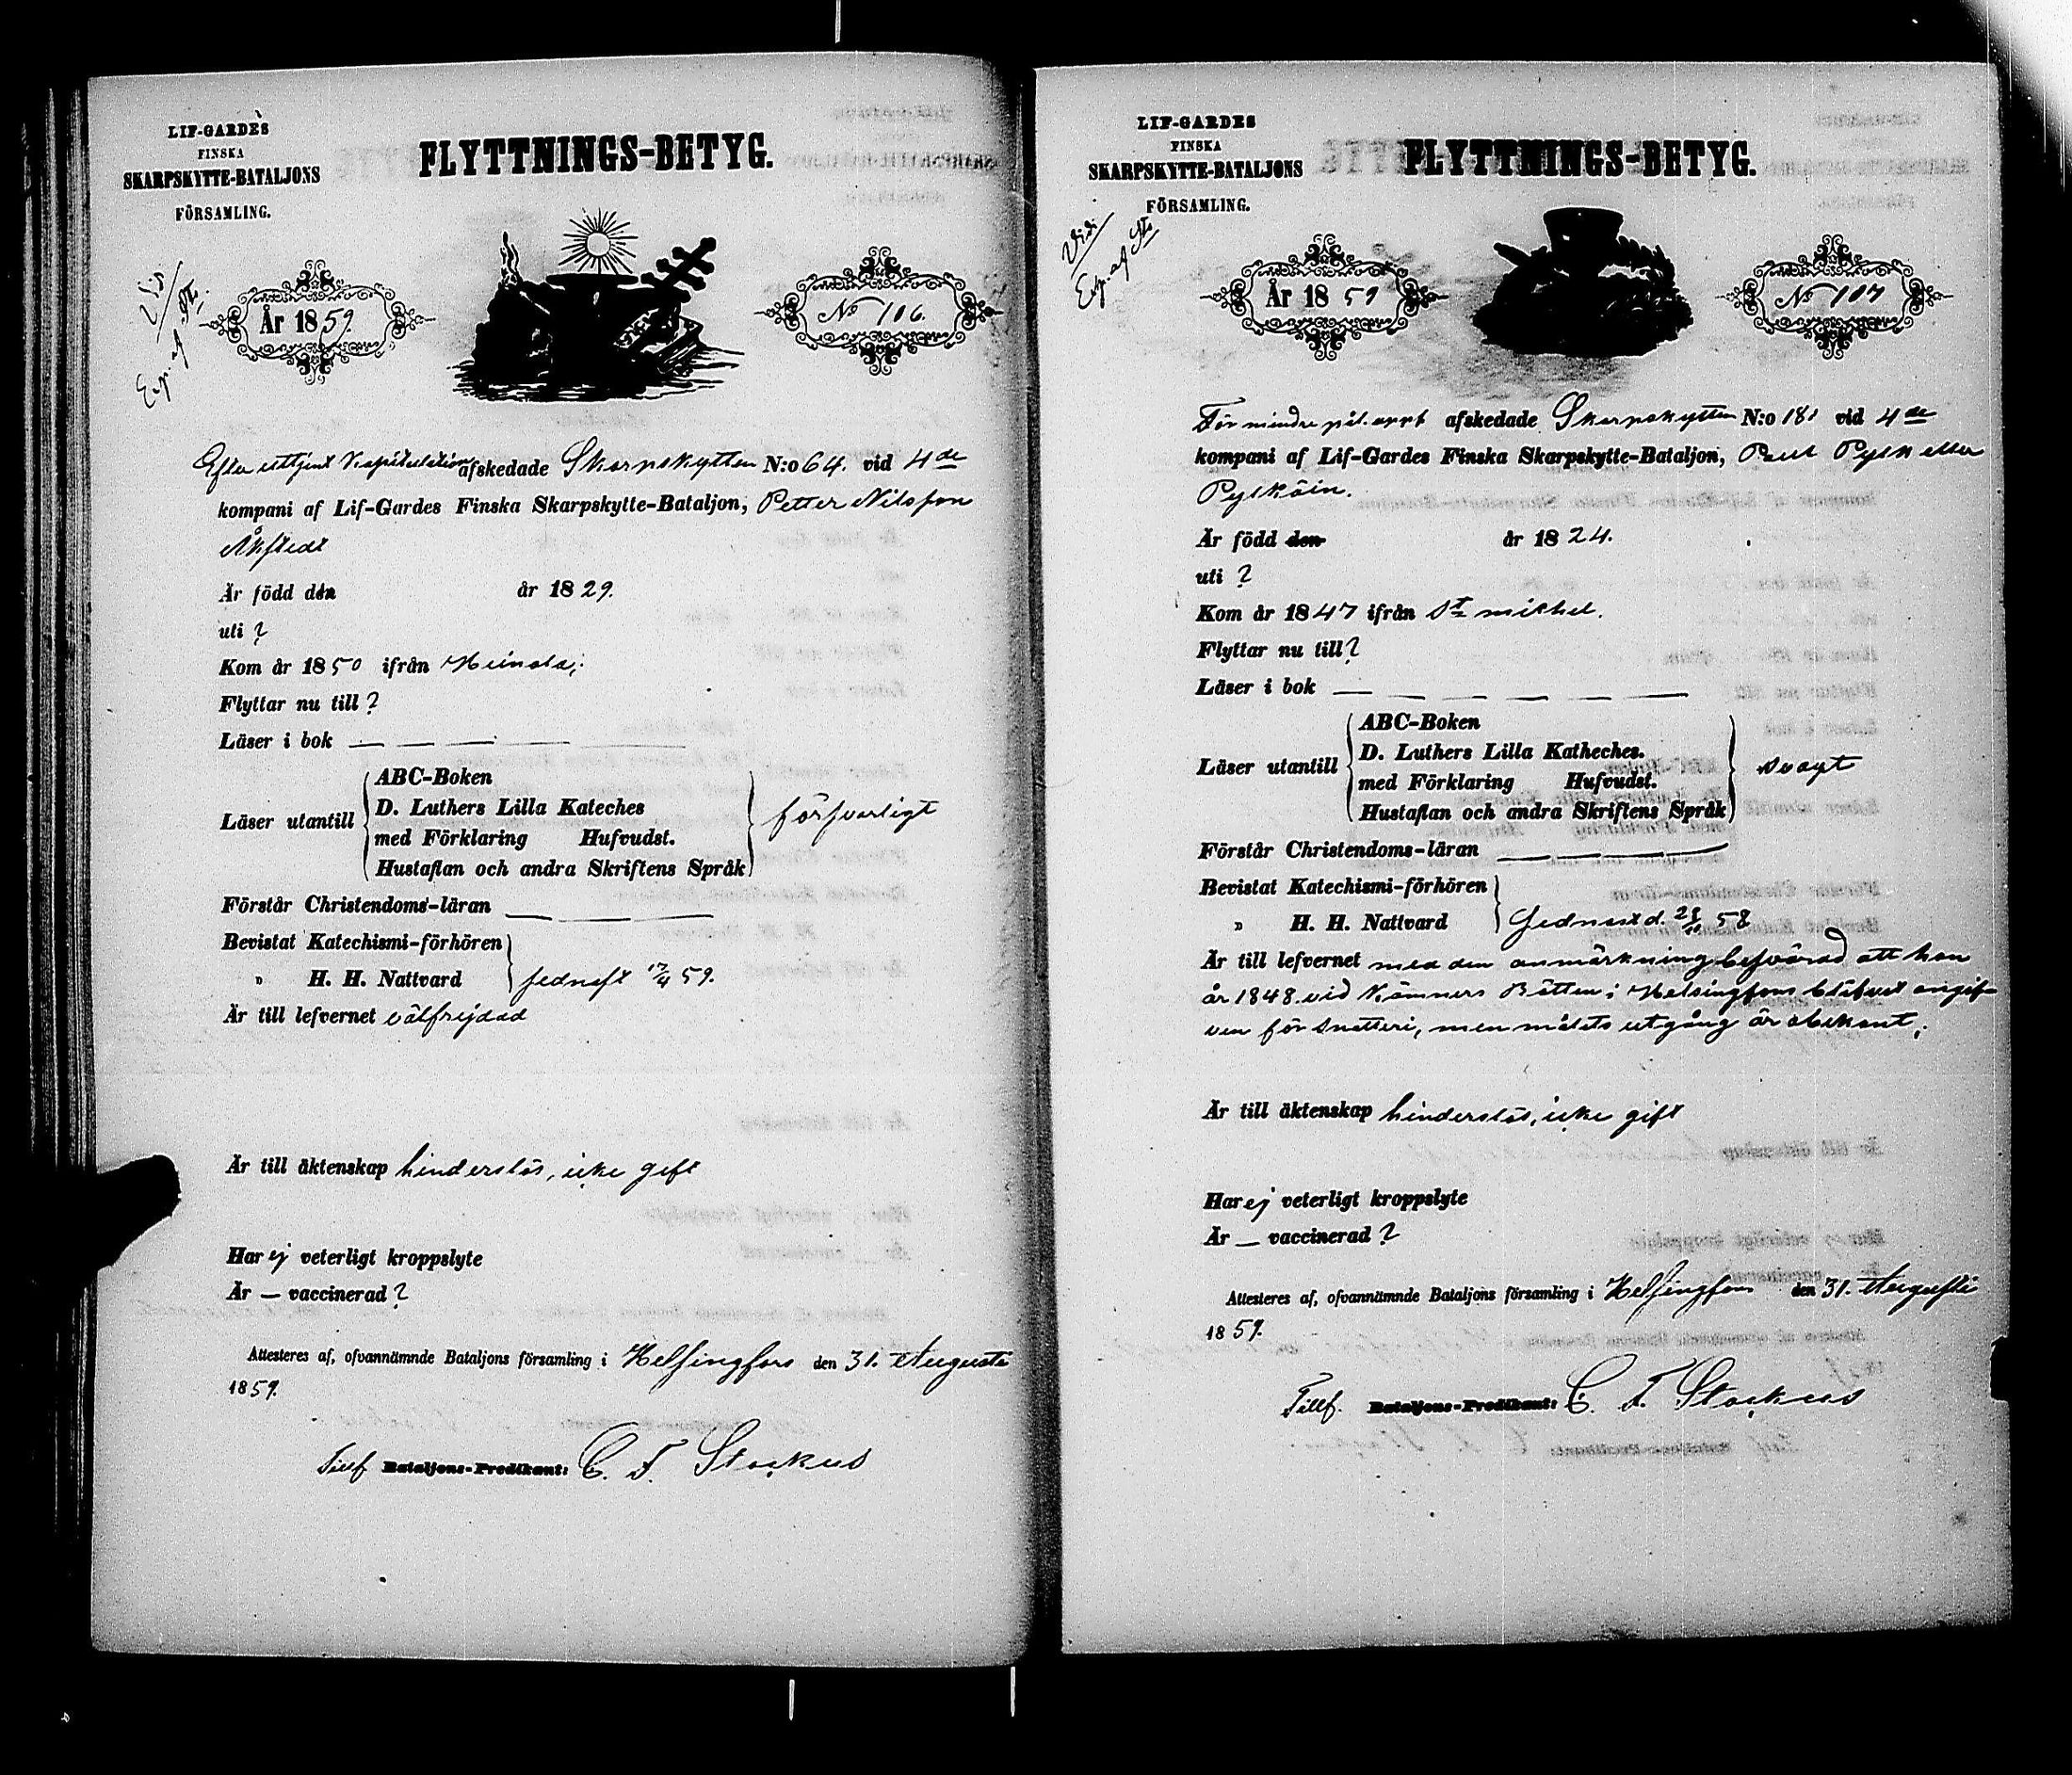 LIF-GARDES
FINSKA
SKARPSKYTTE-BATALJONS
FÖRSAMLING.
FLYTTNINGS-BETYG.
År 1859.
No 106.
Efter uttjent Kapitulation afskedade Skarpskytten N:o 64. vid 4de
kompani af Lif-Gardes Finska Skarpskytte-Bataljon, Petter Nilsson
Åkstedt
Är född den år 1829.
uti ?
Kom år 1850 ifrån Heinola;
Flyttar nu till ?
Läser i bok — — — — —
ABC-Boken
D. Luthers Lilla Kateches
Läser utantill med Förklaring Hufvudst. försvarligt
Hustaflan och andra Skriftens Språk
Förstår Christendoms-läran — — — —
Bevistat Katechismi-förhören
" H. H. Nattvard sednast 17/4 59.
Är till lefvernet välfrejdad
Är till äktenskap hinderslös, icke gift
Har ej veterligt kroppslyte
Är — vaccinerad ?
Attesteres af, ofvannämnde Bataljons församling i Helsingfors den 31. Augusti
1859.
Tillf. Bataljons-Predikant: C. F. Stockus
LIF-GARDES
FINSKA
SKARPSKYTTE-BATALJONS
FÖRSAMLING.
FLYTTNINGS-BETYG.
Vidi
År 1859
No 107
För mindre afskedade Skarpskytten N:o 181 vid 4de
kompani af Lif-Gardes Finska Skarpskytte-Bataljon, Paul Pylk eller
Pylkäin.
Är född den år 1824.
uti ?
Kom år 1847 ifrån St michel.
Flyttar nu till ?
Läser i bok — — — — — —
ABC-Boken
D. Luthers Lilla Katheches.
Läser utantill med Förklaring Hufvudst. svagt
Hustaflan och andra Skriftens Språk
Förstår Christendoms-läran — — — —
Bevistat Katechismi-förhören
" H. H. Nattvard sednast d. 58
Är till lefvernet med den anmärkning besvärad att han
år 1848 vid Kämners Rätten i Helsingfors blifvit angif-
ven för snatteri, men målets utgång är obekant.
Är till äktenskap hinderslös, icke gift
Har ej veterligt kroppslyte
Är — vaccinerad ?
Attesteres af, ofvannämnde Bataljons församling i Helsingfors den 31. Augusti
1859.
Tillf. Bataljons-Predikant: C. F. Stockus